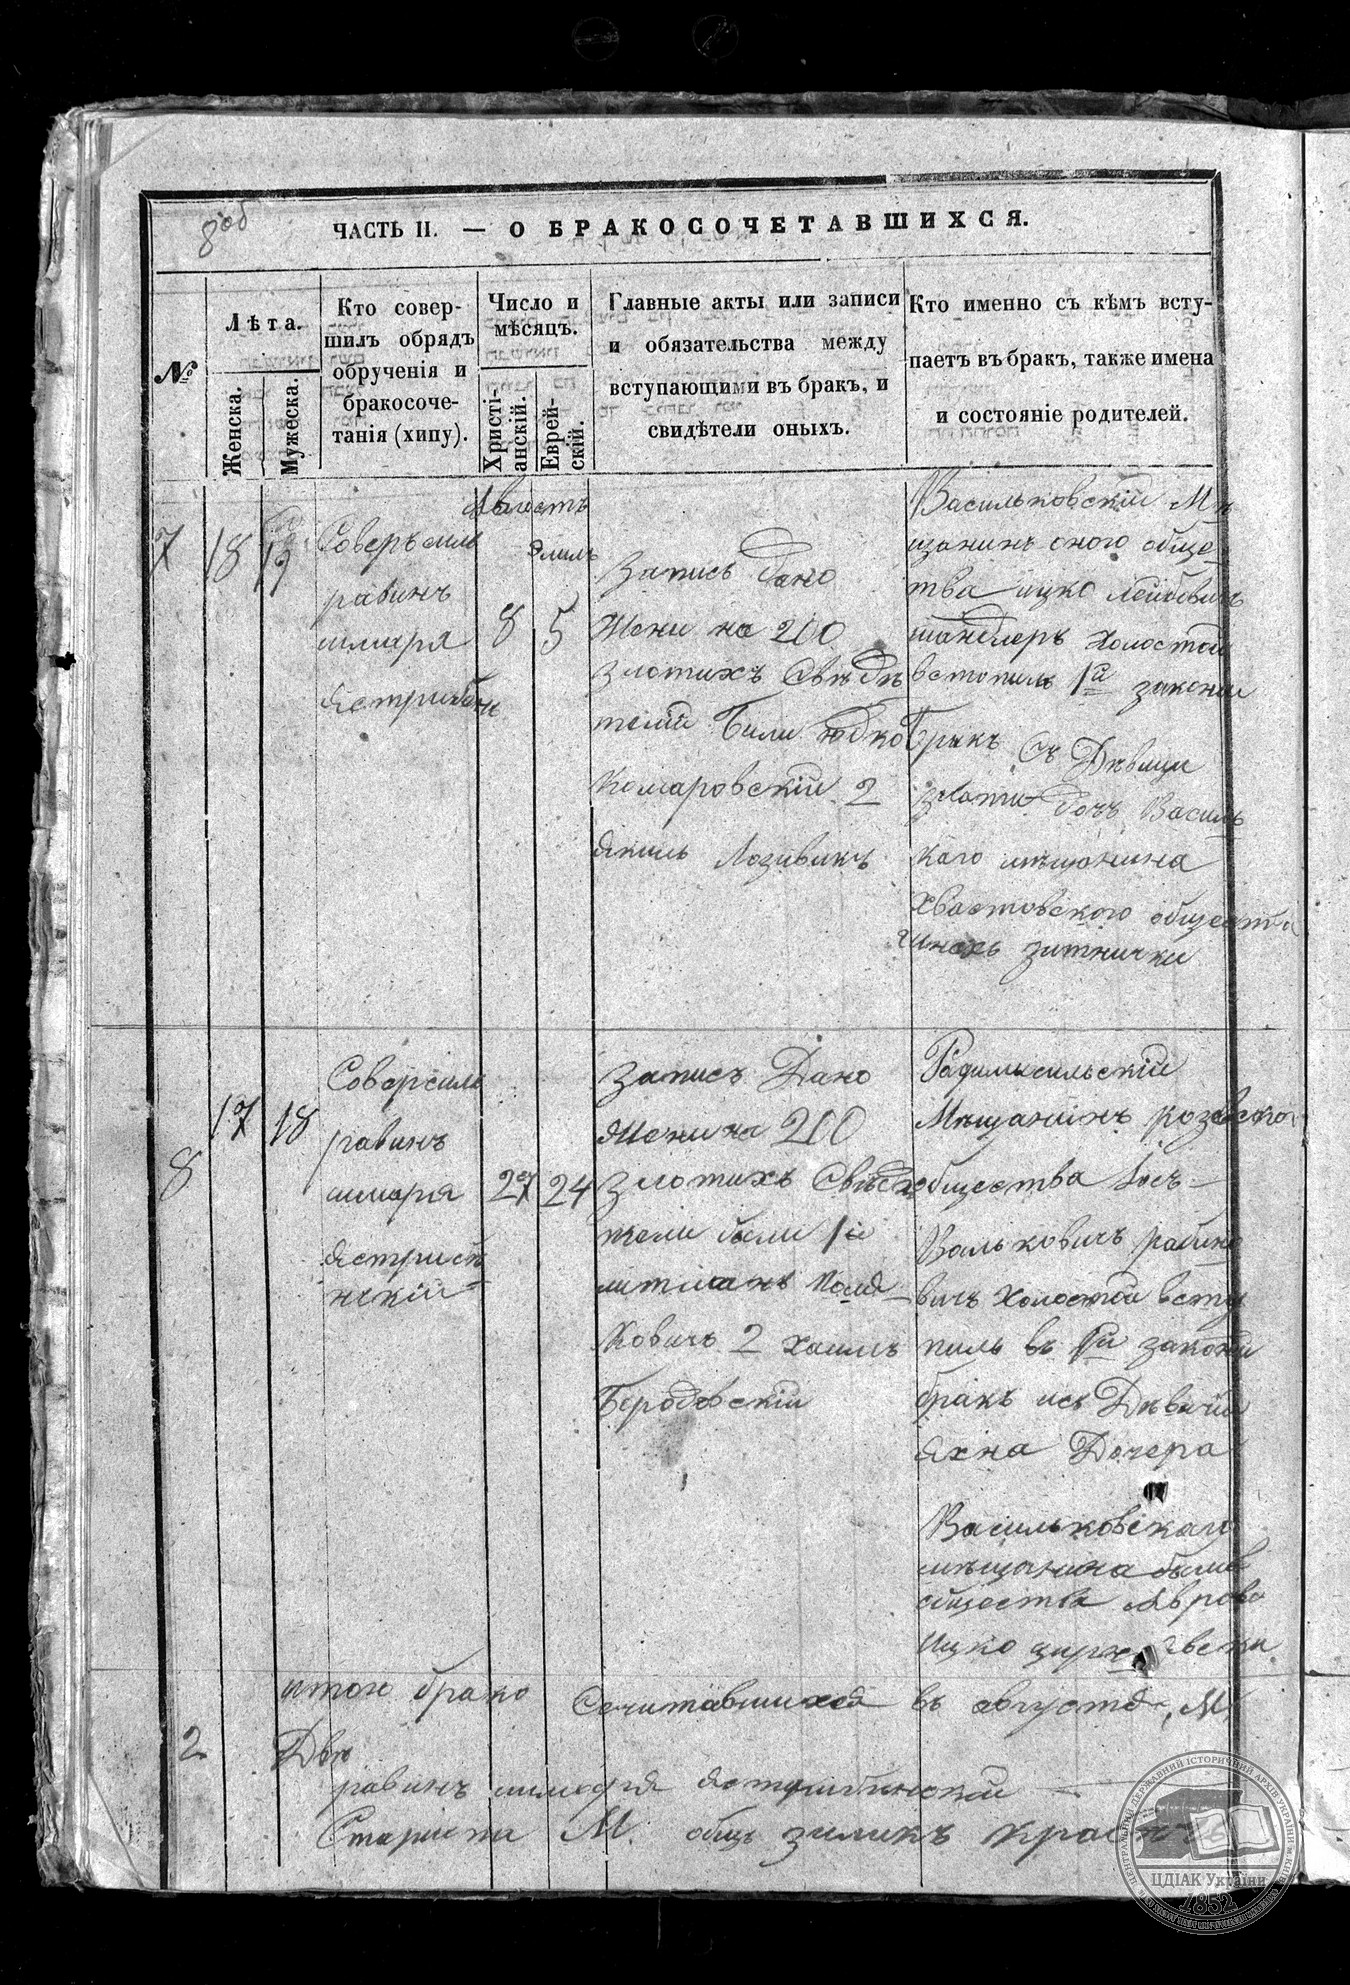 8 об
ЧАСТЬ II. — О БРАКОСОЧЕТАВШИХСЯ.
№
Лѣта.
Женска.
Мужеска.
Кто совер-
шилъ обрядъ
обрученія и
бракосоче-
танія (хипу).
Число и
мѣсяцъ.
Христі-
анскій.
Еврей-
скій.
Главные акты или записи
и обязательства между
вступающими въ бракъ, и
свидѣтели оныхъ.
Кто именно съ кѣмъ всту-
паетъ въ бракъ, также имена
и состояніе родителей.
7
18
19
Соверъшилъ
равинъ
шмаря
Августъ
Элилъ
8
5
Запись дано
Жени на 200
Злотихъ Свѣдѣ
телй били Юдко
Комаровскій 2
Васильковскій Мѣ
щанинъ оного обще
тва ицко Лейбовичъ
холостой
встопилъ 1й законни
бракъ Съ Дѣвици
Злати дочъ Василь
каго мѣщанина
Хвастовского общества
8
17
18
Совершилъ
равинъ
шмаря
Ястриб
нскій
27
24
Запись Дано
Жени на 200
Злотихъ Свѣде
тели были 1й
Ковичъ 2 хаимъ
Бородовскій
Радимисильскій
Мѣщанинъ
общества
Вальковичъ рабино
вичъ Холостой всту
пилъ въ 1й законни
бракъ исъ Дѣвицй
Яхна Дочера
Васильковскаго
мѣщанина
общества
Ицко
итого брако Сочитавшихся въ августѣ М.
2
Двю
равинъ шмаря Ястрибинскій
Староста М. общ зиликъ
ЦЕНТРАЛЬНИЙ ДЕРЖАВНИЙ ІСТОРИЧНИЙ АРХІВ УКРАЇНИ М. КИЇВ
ЦДІАК України
1852